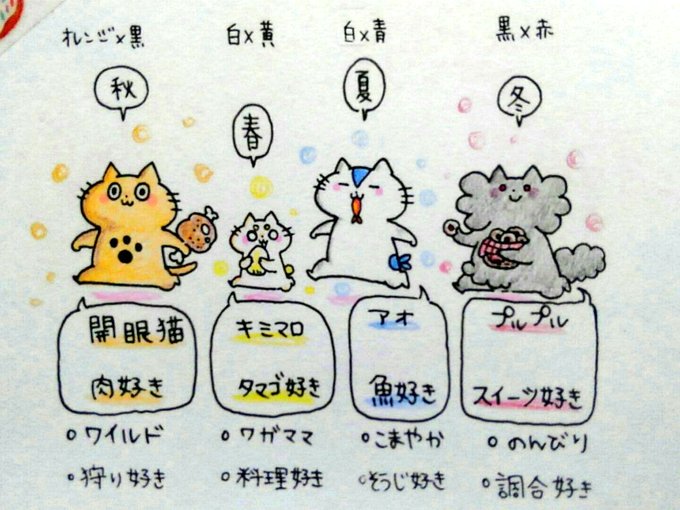 オレンジx黒
白x黄
白x青
黒x赤
秋
春
夏
冬
開眼猫
肉好き
キミマロ
タマゴ好き
アオ
魚好き
プルプル
スイーツ好き
○ワイルド
○狩り好き
○ワガママ
○料理好き
○こまやか
○そうじ好き
○のんびり
○調合好き